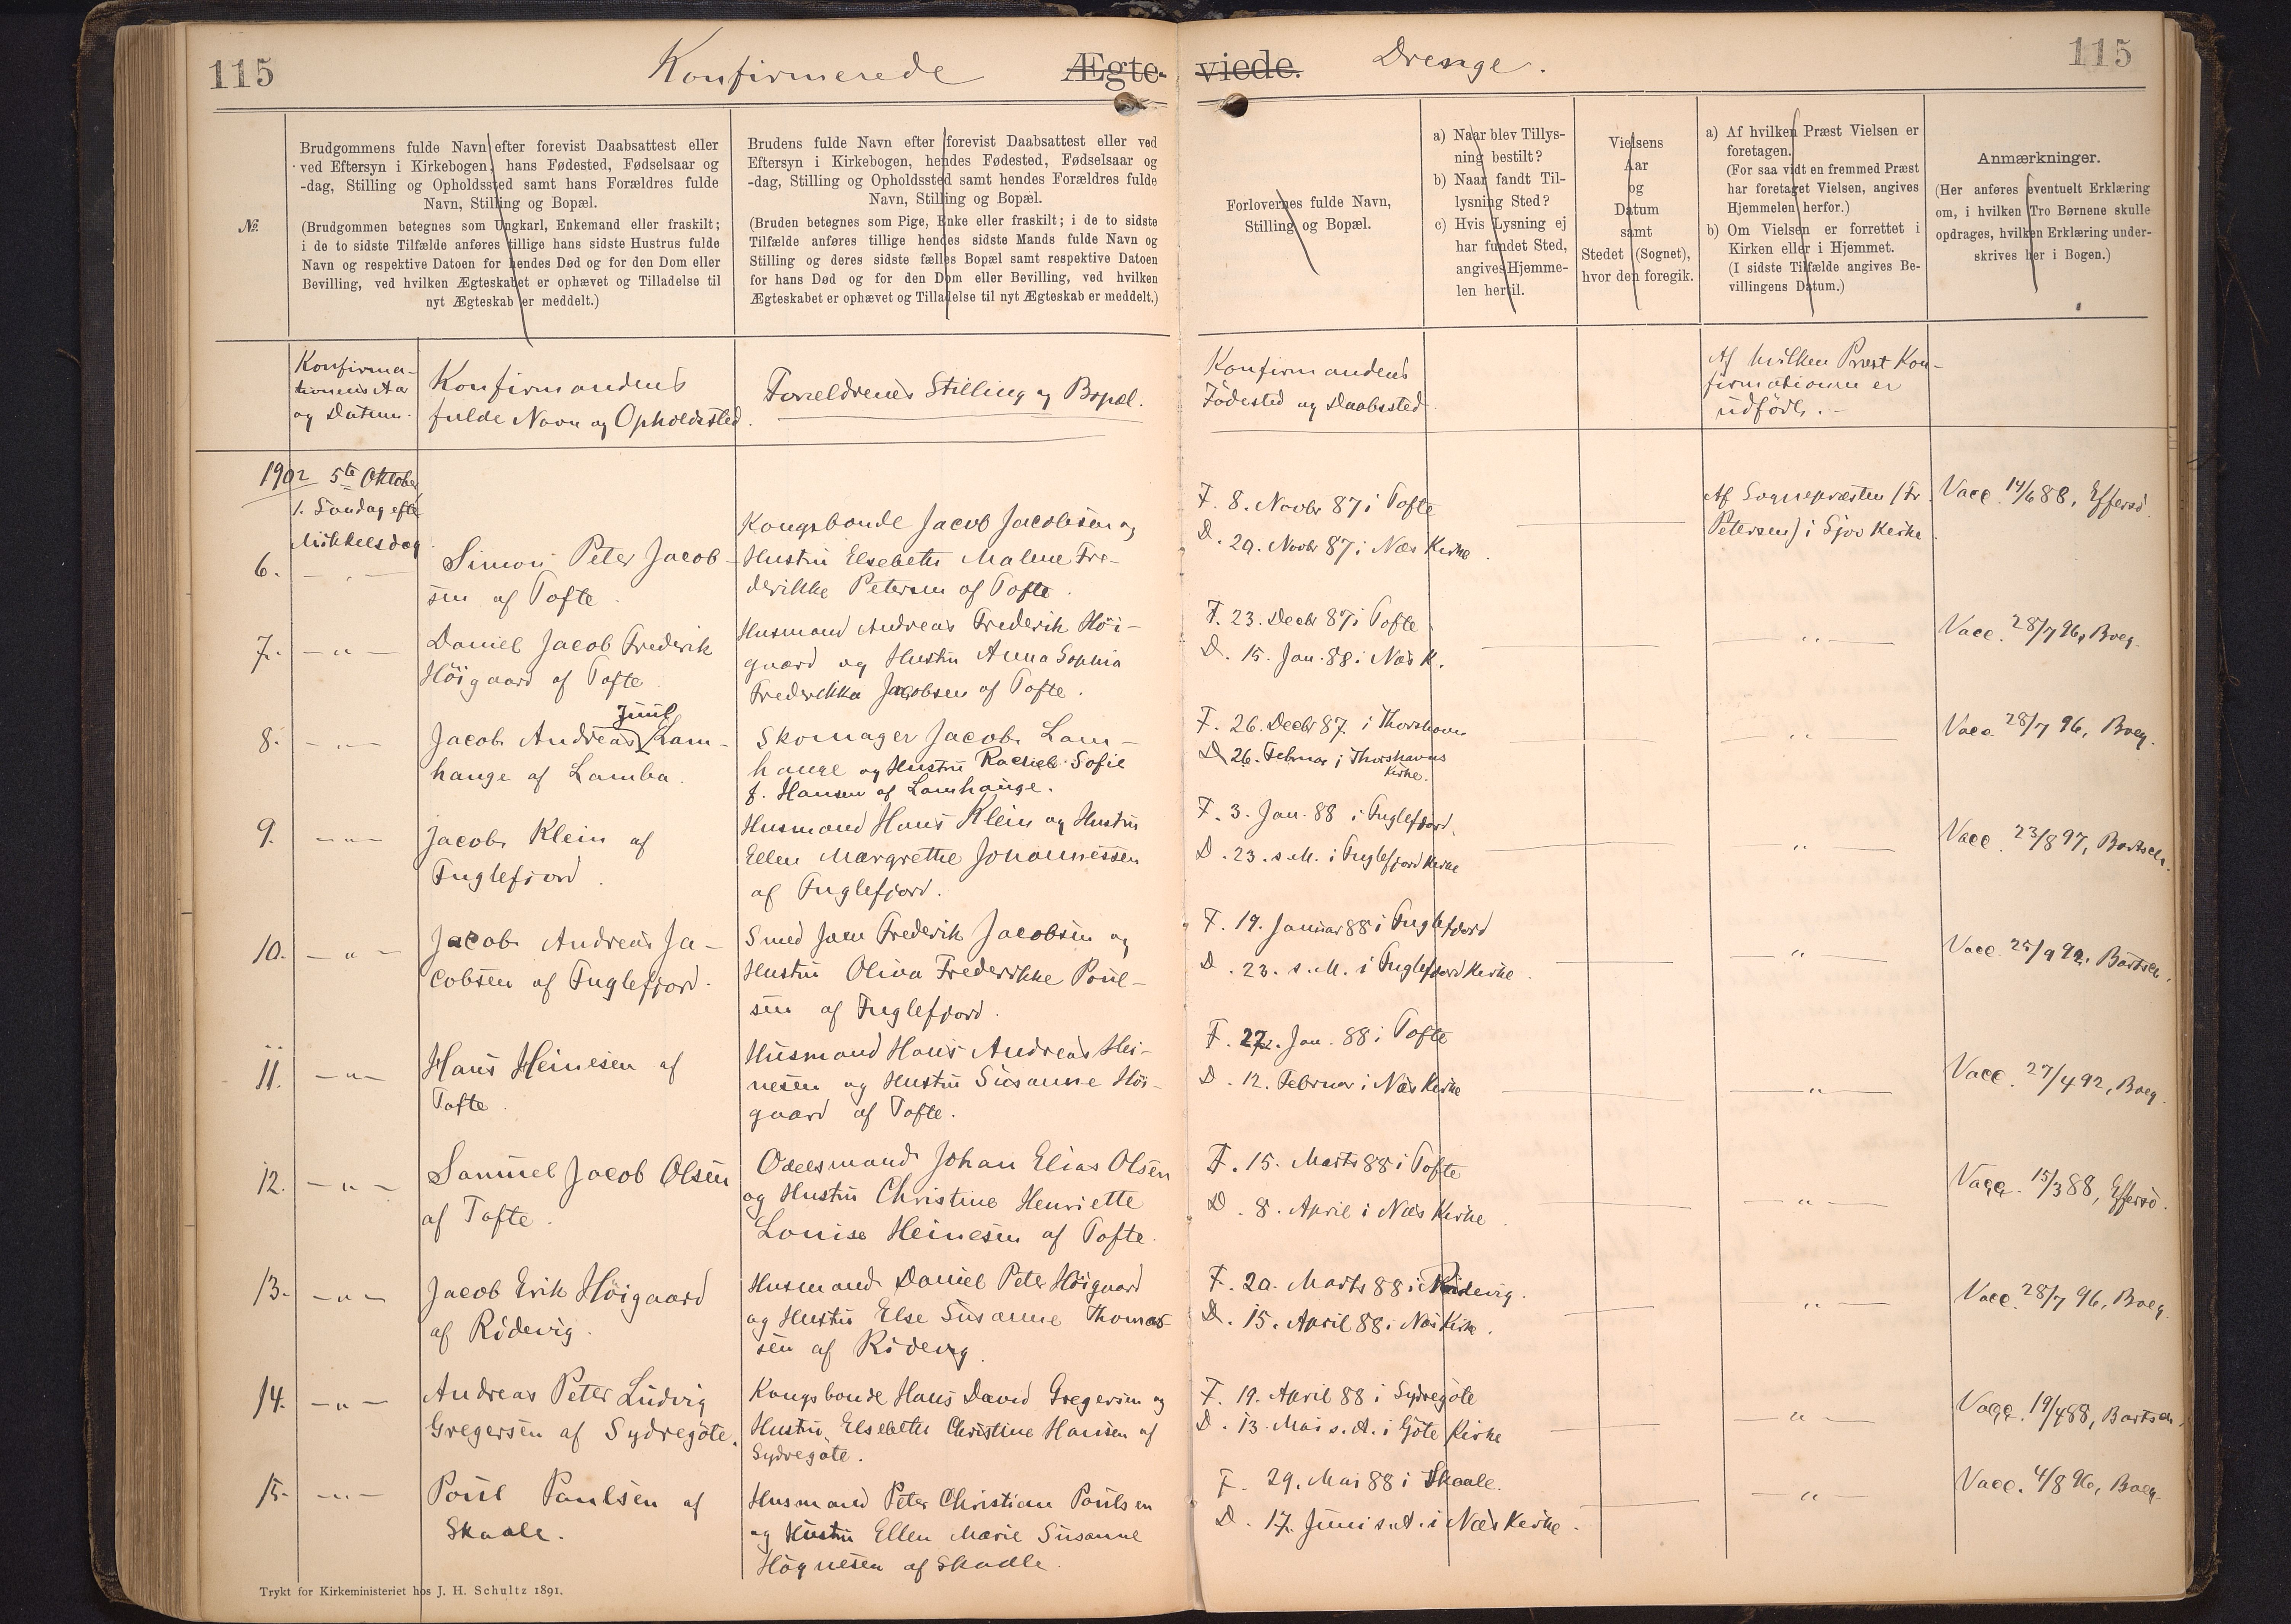 115
Konfirmerede
Ægte-
viede.
Drenge.
115
No.
Brudgommens fulde Navn efter forevist Daabsattest eller
ved Eftersyn i Kirkebogen, hans Fødested, Fødselsaar og
-dag, Stilling og Opholdssted samt hans Forældres fulde
Navn, Stilling og Bopæl.
(Brudgommen betegnes som Ungkarl, Enkemand eller fraskilt;
i de to sidste Tilfælde anføres tillige hans sidste Hustrus fulde
Navn og respektive Datoen for hendes Død og for den Dom eller
Bevilling, ved hvilken Ægteskabet er ophævet og Tilladelse til
nyt Ægteskab er meddelt.)
Brudens fulde Navn efter forevist Daabsattest eller ved
Eftersyn i Kirkebogen, hendes Fødested, Fødselsaar og
-dag, Stilling og Opholdssted samt hendes Forældres fulde
Navn, Stilling og Bopæl.
(Bruden betegnes som Pige, Enke eller fraskilt; i de to sidste
Tilfælde anføres tillige hendes sidste Mands fulde Navn og
Stilling og deres sidste fælles Bopæl samt respektive Datoen
for hans Død og for den Dom eller Bevilling, ved hvilken
Ægteskabet er ophævet og Tilladelse til nyt Ægteskab er meddelt.)
Forlovernes fulde Navn,
Stilling og Bopæl.
a) Naar blev Tillys-
ning bestilt?
b) Naar fandt Til-
lysning Sted?
c) Hvis Lysning ej
har fundet Sted,
angives Hjemme-
len hertil.
Vielsens
Aar
og
Datum
samt
Stedet (Sognet),
hvor den foregik.
a) Af hvilken Præst Vielsen er
foretagen.
(For saa vidt en fremmed Præst
har foretaget Vielsen, angives
Hjemmelen herfor.)
b) Om Vielsen er forrettet i
Kirken eller i Hjemmet.
(I sidste Tilfælde angives Be-
villingens Datum.)
Anmærkninger.
(Her anføres eventuelt Erklæring
om, i hvilken Tro Børnene skulle
opdrages, hvilken Erklæring under-
skrives her i Bogen.)
Konfirma-
tionens Aa
og Datum.
Konfirmandens
fulde Navn og Opholdssted.
Forældrenes Stilling og Bopæl.
Konfirmandens
Fødested og Daabssted
Af hvilken Præst Kon-
firmationen er
udført.
1902 5te Oktober
1. Søndag efte
Mikkelsdag
6. Simon Peter Jacob-
sen af Tofte.
Kongsbonde Jacob Jacobsen og
Hustru Elsebeth Malene Fre-
derikke Petersen af Tofte.
F. 8. Novbr 87 i Tofte
D. 20. Novbr 87 i Næs Kirke.
Af Sognepræsten (Fr.
Petersen) i Sjov Kirke.
Vacc. 14/6 88, Effersö.
7. — " — Daniel Jacob Frederik
Höigaard af Tofte
Husmand Andreas Frederik Höi-
gaard og Hustru Anna Sophia
Frederikka Jacobsen af Tofte.
F. 23. Decbr 87 i Tofte
D. 15. Jan. 88 i Næs K.
— " —
Vacc. 28/7 96, Boeg.
8. — " — Jacob Andreas Juul Lam-
hauge af Lamba.
Skomager Jacob Lam-
hauge og Hustru Rachel Sofie
f. Hansen af Lamhauge.
F. 26. Decbr 87 i Thorshavn
D. 26. Februar i Thorshavns
Kirke.
— " —
Vacc. 28/7 96, Boeg.
9. — " — Jacob Klein af
Fuglefjord.
Husmand Hans Klein og Hustru
Ellen Margrethe Johannessen
af Fuglefjord.
F. 3. Jan. 88 i Fuglefjord.
D. 23. s.M. i Fuglefjord Kirke
— " —
Vacc. 23/8 97, Bartsch.
10. — " — Jacob Andreas Ja-
cobsen af Fuglefjord.
Smed Joen Frederik Jacobsen og
Hustru Oliva Frederikke Poul-
sen af Fuglefjord.
F. 19. Januar 88 i Fuglefjord
D. 23. s.M. i Fuglefjord Kirke.
— " —
Vacc. 25/9 92, Bartsch.
11. — " — Hans Heinesen af
Tofte.
Husmand Hans Andreas Hei-
nesen og Hustru Susanne Höi-
gaard af Tofte.
F. 22. Jan. 88 i Tofte
D. 12. Februar i Næs Kirke
— " —
Vacc. 27/4 92, Boeg.
12. — " — Samuel Jacob Olsen
af Tofte.
Odelsmand Johan Elias Olsen
og Hustru Christine Henriette
Louise Heinesen af Tofte.
F. 15. Marts 88 i Tofte
D. 8. April i Næs Kirke.
— " —
Vacc. 15/3 88, Effersö.
13. — " — Jacob Erik Höigaard
af Ridevig.
Husmand Daniel Peter Höigaard
og Hustru Else Susanne Thomas-
sen af Ridevig.
F. 20. Marts 88 i Ridevig.
D. 15. April 88 i Næs Kirke.
— " —
Vacc. 28/7 96, Boeg.
14. — " — Andreas Peter Ludvig
Gregersen af Sydregöte.
Kongsbonde Hans David Gregersen og
Hustru Elsebeth Christine Hansen af
Sydregöte.
F. 19. April 88 i Sydregöte
D. 13. Mai s.A. i Göte Kirke
— " —
Vacc. 19/4 88, Bartsch.
15. — " — Poul Paulsen af
Skaale.
Husmand Peter Christian Poulsen
og Hustru Ellen Marie Susanne
Högnesen af Skaale.
F. 29. Mai 88 i Skaale.
D. 17. Juni s.A. i Næs Kirke.
— " —
Vacc. 4/8 96, Boeg.
Trykt for Kirkeministeriet hos J. H. Schultz 1891.